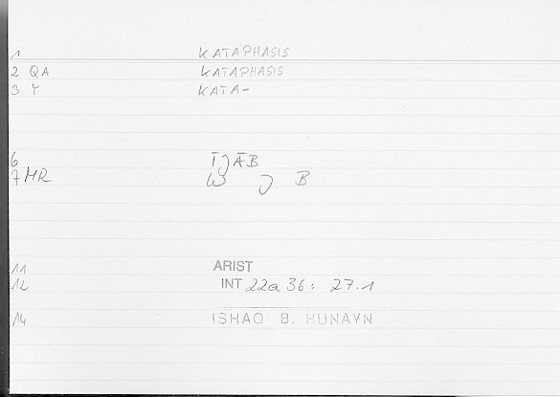 1 KATAPHASIS
2 QA KATAPHASIS
3 Y KATA-
6 ĪJĀB
7 MR W J B
11 ARIST
12 INT 22a36: 27.1
14 ISHAQ B. HUNAYN